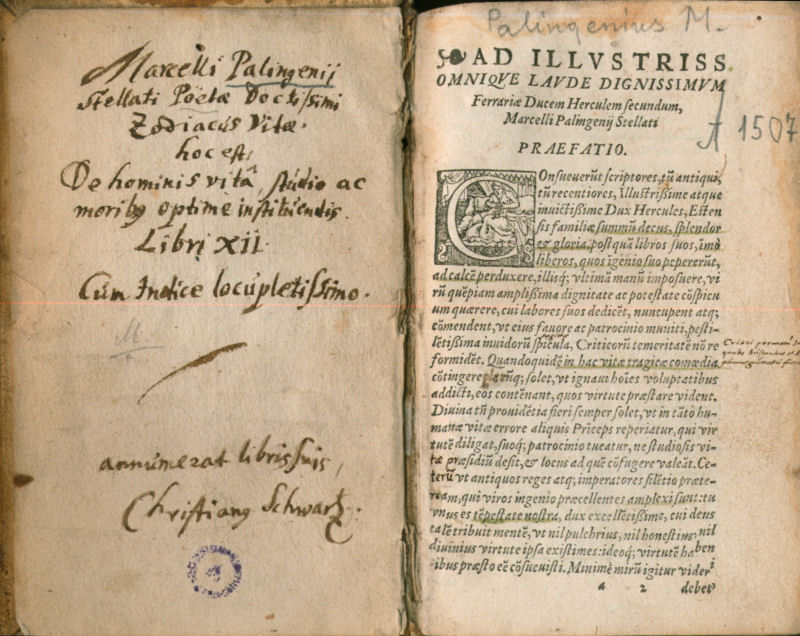 Marcelli Palingenij
Stellati Poëtæ Doctissimi
Zodiacus Vitæ
hoc est,
De hominis vitâ, studio ac
moribꝰ optime instituendis.
Libri XII.
Cum Indice locupletissimo.
M
annumerat libris suis,
Christianꝰ Schwartz.
Palingenius M.
AD ILLVSTRISS.
OMNIQVE LAVDE DIGNISSIMVM
Ferrariæ Ducem Herculem secundum,
Marcelli Palingenij Stellati
1507
PRAEFATIO.
COnsueuerũt scriptores, tũ antiqui,
tũ recentiores, Illustrissime atque
inuictissime Dux Hercules, Esten
sis familiæ summũ decus, splendor
& gloria, postquã libros suos, imò
liberos, quos ĩgenio suo pepererũt,
ad calcẽ perduxere, illisq; vltimã manũ imposuere, vi
rũ quẽpiam amplissima dignitate ac potestate cõspicu
um quærere, cui labores suos dedicẽt, nuncupent atq;
cõmendent, vt eius fauore ac patrocinio muniti, pesti-
lẽtissima inuidorũ spicula, Criticorũ temeritatẽ nõ re
formidẽt. Quandoquidẽ in hac vitæ tragica comœdia
cõtingere plerũq; solet, vt ignaui hoĩes voluptatibus
addicti, eos contẽnant, quos virtute præstare vident.
Diuina tñ prouidẽtia fieri semper solet, vt in tãto hu-
manæ vitæ errore aliquis Prĩceps reperiatur, qui vir
tutẽ diligat, suoq; patrocinio tueatur, ne studiosis vi-
tæ præsidiũ desit, & locus ad quẽ cõfugere valeãt. Ce-
terũ vt antiquos reges atq; imperatores silẽtio præte-
ream, qui viros ingenio præcellentes amplexi sunt: tu
vnus es tẽpestate nostra, dux excellẽtissime, cui deus
talẽ tribuit mentẽ, vt nil pulchrius, nil honestius, nil
diuinius virtute ipsa existimes: ideoq; virtutẽ haben
ibus præsto eẽ cõsueuisti. Minimè mirũ igitur videri
a 2 debet